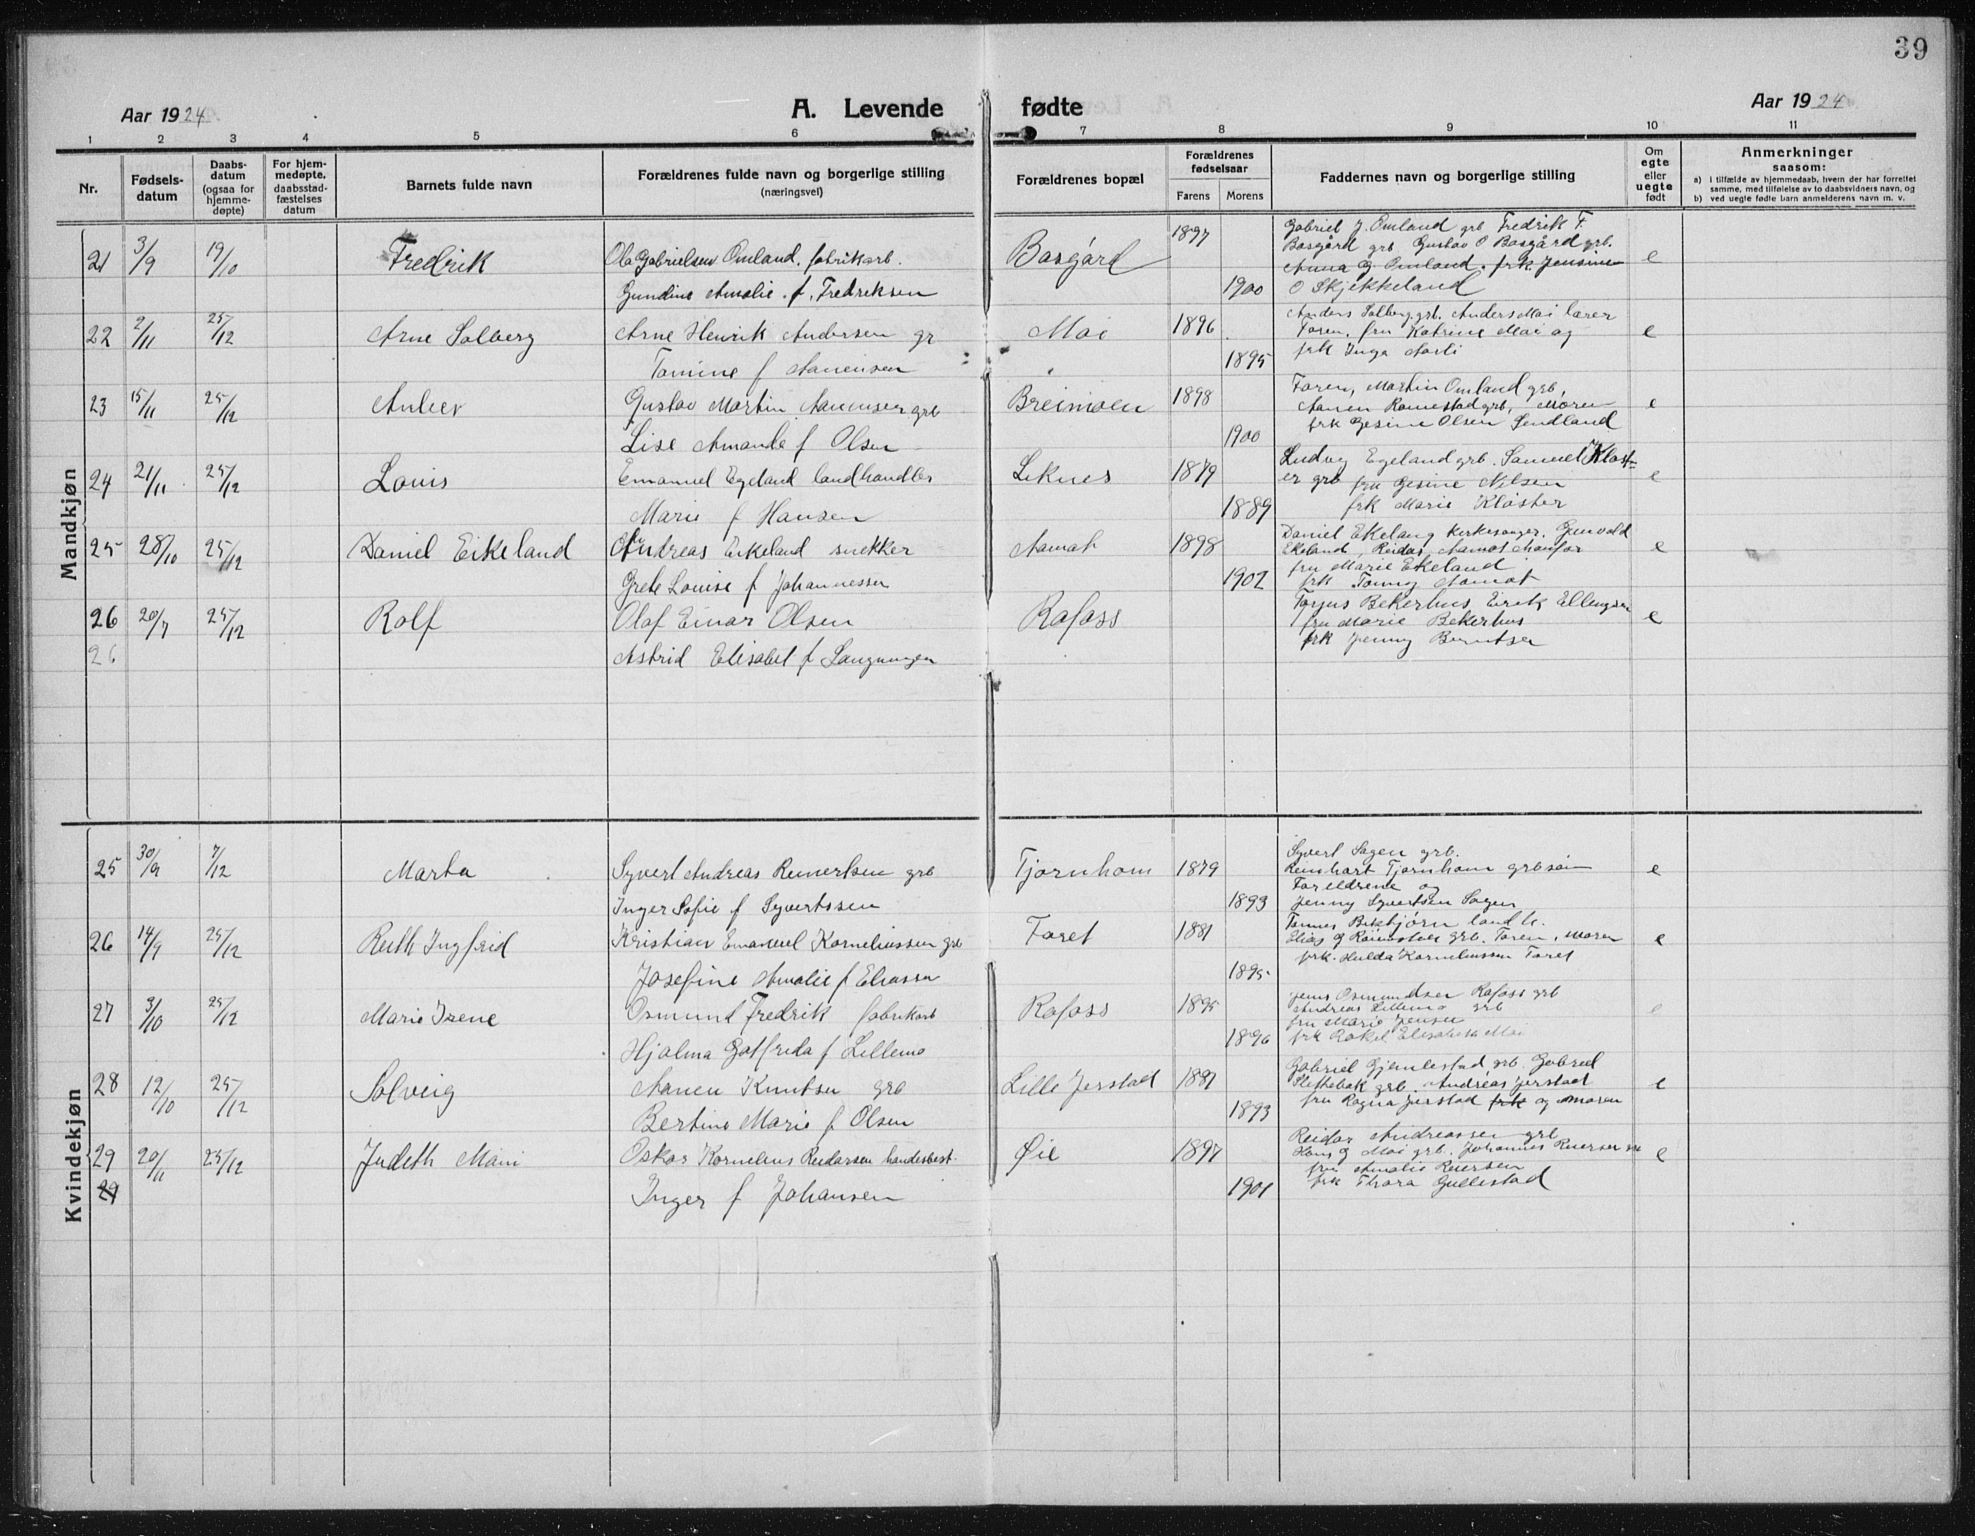 39
Aar 1924
A. Levende fødte
Aar 1924
1 2 3 4 5 6 7 8 9 10 11
Nr.
Fødsels-
datum
Daabs-
datum
(ogsaa for
hjemme-
døpte)
For hjem-
medøpte,
daabsstad-
fæstelses
datum
Barnets fulde navn
Forældrenes fulde navn og borgerlige stilling
(næringsvei)
Forældrenes bopæl
Forældrenes
fødselsaar
Farens Morens
Faddernes navn og borgerlige stilling
Om
egte
eller
uegte
født
Anmerkninger
saasom:
a) i tilfælde av hjemmedaab, hvem der har forrettet
samme, med tilføielse av to daabsvidners navn, og
b) ved uegte fødte barn anmelderens navn m. v.
Mandkjøn
21 3/9 19/10 Fredrik Ola Gabrielsen Omland, fabrikarb. Basgård 1897 Gabriel J. Omland grb Fredrik F.
Basgård grb Gustav O Basgård grb.
Anna G Omland. frk Jensine e
Gundine Amalie f. Fredriksen 1900 O Skjekkeland
22 2/11 25/12 Arne Solberg Arne Henrik Andersen gr Moi 1896 Anders Solberg grb. Anders Moi lærer
Faren, fru Katrine Moi og e
Tomine f Aanensen 1895 frk Inga Aasli
23 15/11 25/12 Gustav Martin Aanensen grb Breimoen 1898 Faren, Martin Omland grb,
Aanen Romestad grb, Moren e
Lise Amanda f Olsen 1900 frk Gesine Olsen Sendland
24 21/11 25/12 Louis Emanuel Egeland landhandler Liknes 1879 Ludvig Egeland grb. Samuel Klost-
er grb fru Gesine Nilsen e
Marie f Hansen 1889 frk Marie Kløster
25 28/10 25/12 Daniel Eikeland Andreas Eikeland snekker Aamot 1898 Daniel Ekeland kirkesanger, Gunvald
Ekeland, Reidar Aamot e
fru Marie Ekeland
Grete Louise f Johannessen 1902 frk Tonny Aamot
26 20/7 25/12 Rolf Olaf Einar Olsen Rafoss Tarjus Bekerhus Eirik Ellingsen
fru Marie Bekerhus e
26 Astrid Elisabet f Langmyren frk Jenny Berntsen
Kvindekjøn
25 30/9 7/12 Marta Syvert Andreas Reinertsen grb Tjørnhom 1879 Syvert Sagen grb.
Reinhart Tjørnhom grbsøn e
Foreldrene og
Inger Sofie f Syvertssen 1893 Jenny Syvertsen Sagen
26 14/9 25/12 Ruth Ingfrid Kristian Emanuel Korneliussen grb Faret 1881 Tønnes Birkjørn landh.
grb. Faren, moren e
Josefine Amalie f Eliassen 1895 frk. Hulda Korneliussen Faret
27 3/10 25/12 Marie Irene Osmund Fredrik fabrikarb Rafoss 1895 Jens Osmundsen Rafoss grb
Andreas Lillemo grb e
fru Marie Jensen
Hjalma Gotfreda f Lillemo 1896 frk Rakel Elisabeth Moi
28 12/10 25/12 Solveig Aanen Knutsen grb Lille Jerstad 1881 Gabriel Gjemlestad grb. Gabriel
Slettebak grb. Andreas Jerstad e
Bertine Marie f Olsen 1893 fru Ragna Jerstad frk og moren
29 20/11 25/12 Judeth Maini Oskar Kornelius Reidarsen handesbest. Øie 1897 Reidar Andreassen grb
Hans G Moi grb. Johannes Reiersen e
fru Amalie Reiersen
29 Inger f Johansen 1901 frk Thora Gullestad